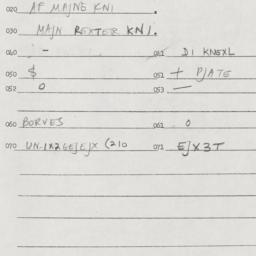 020 AF MAJNS KNI .
030 MAJN REXTER KNI.
040 - 041 DI KNEXL
050 $ 051 + PJATE
052 0 053 —
060 BORVES 061 0
070 UN.1X2GEJEJX (210 071 EJX3T